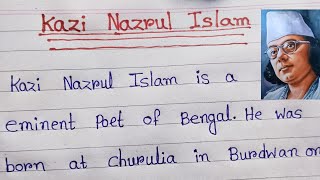 Kazi Nazrul Islam
Kazi Nazrul Islam is a
eminent Poet of Bengal. He was
born at churulia in Burdwan on